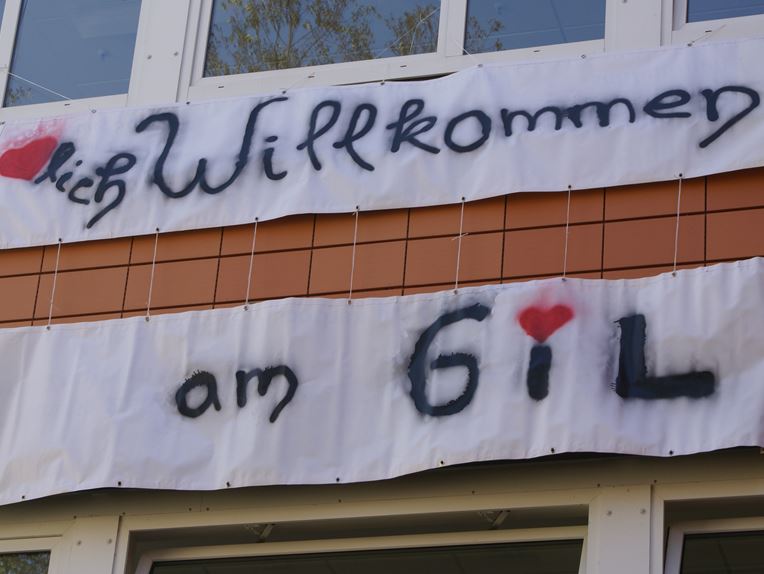 ❤lich Willkommen
am GiL